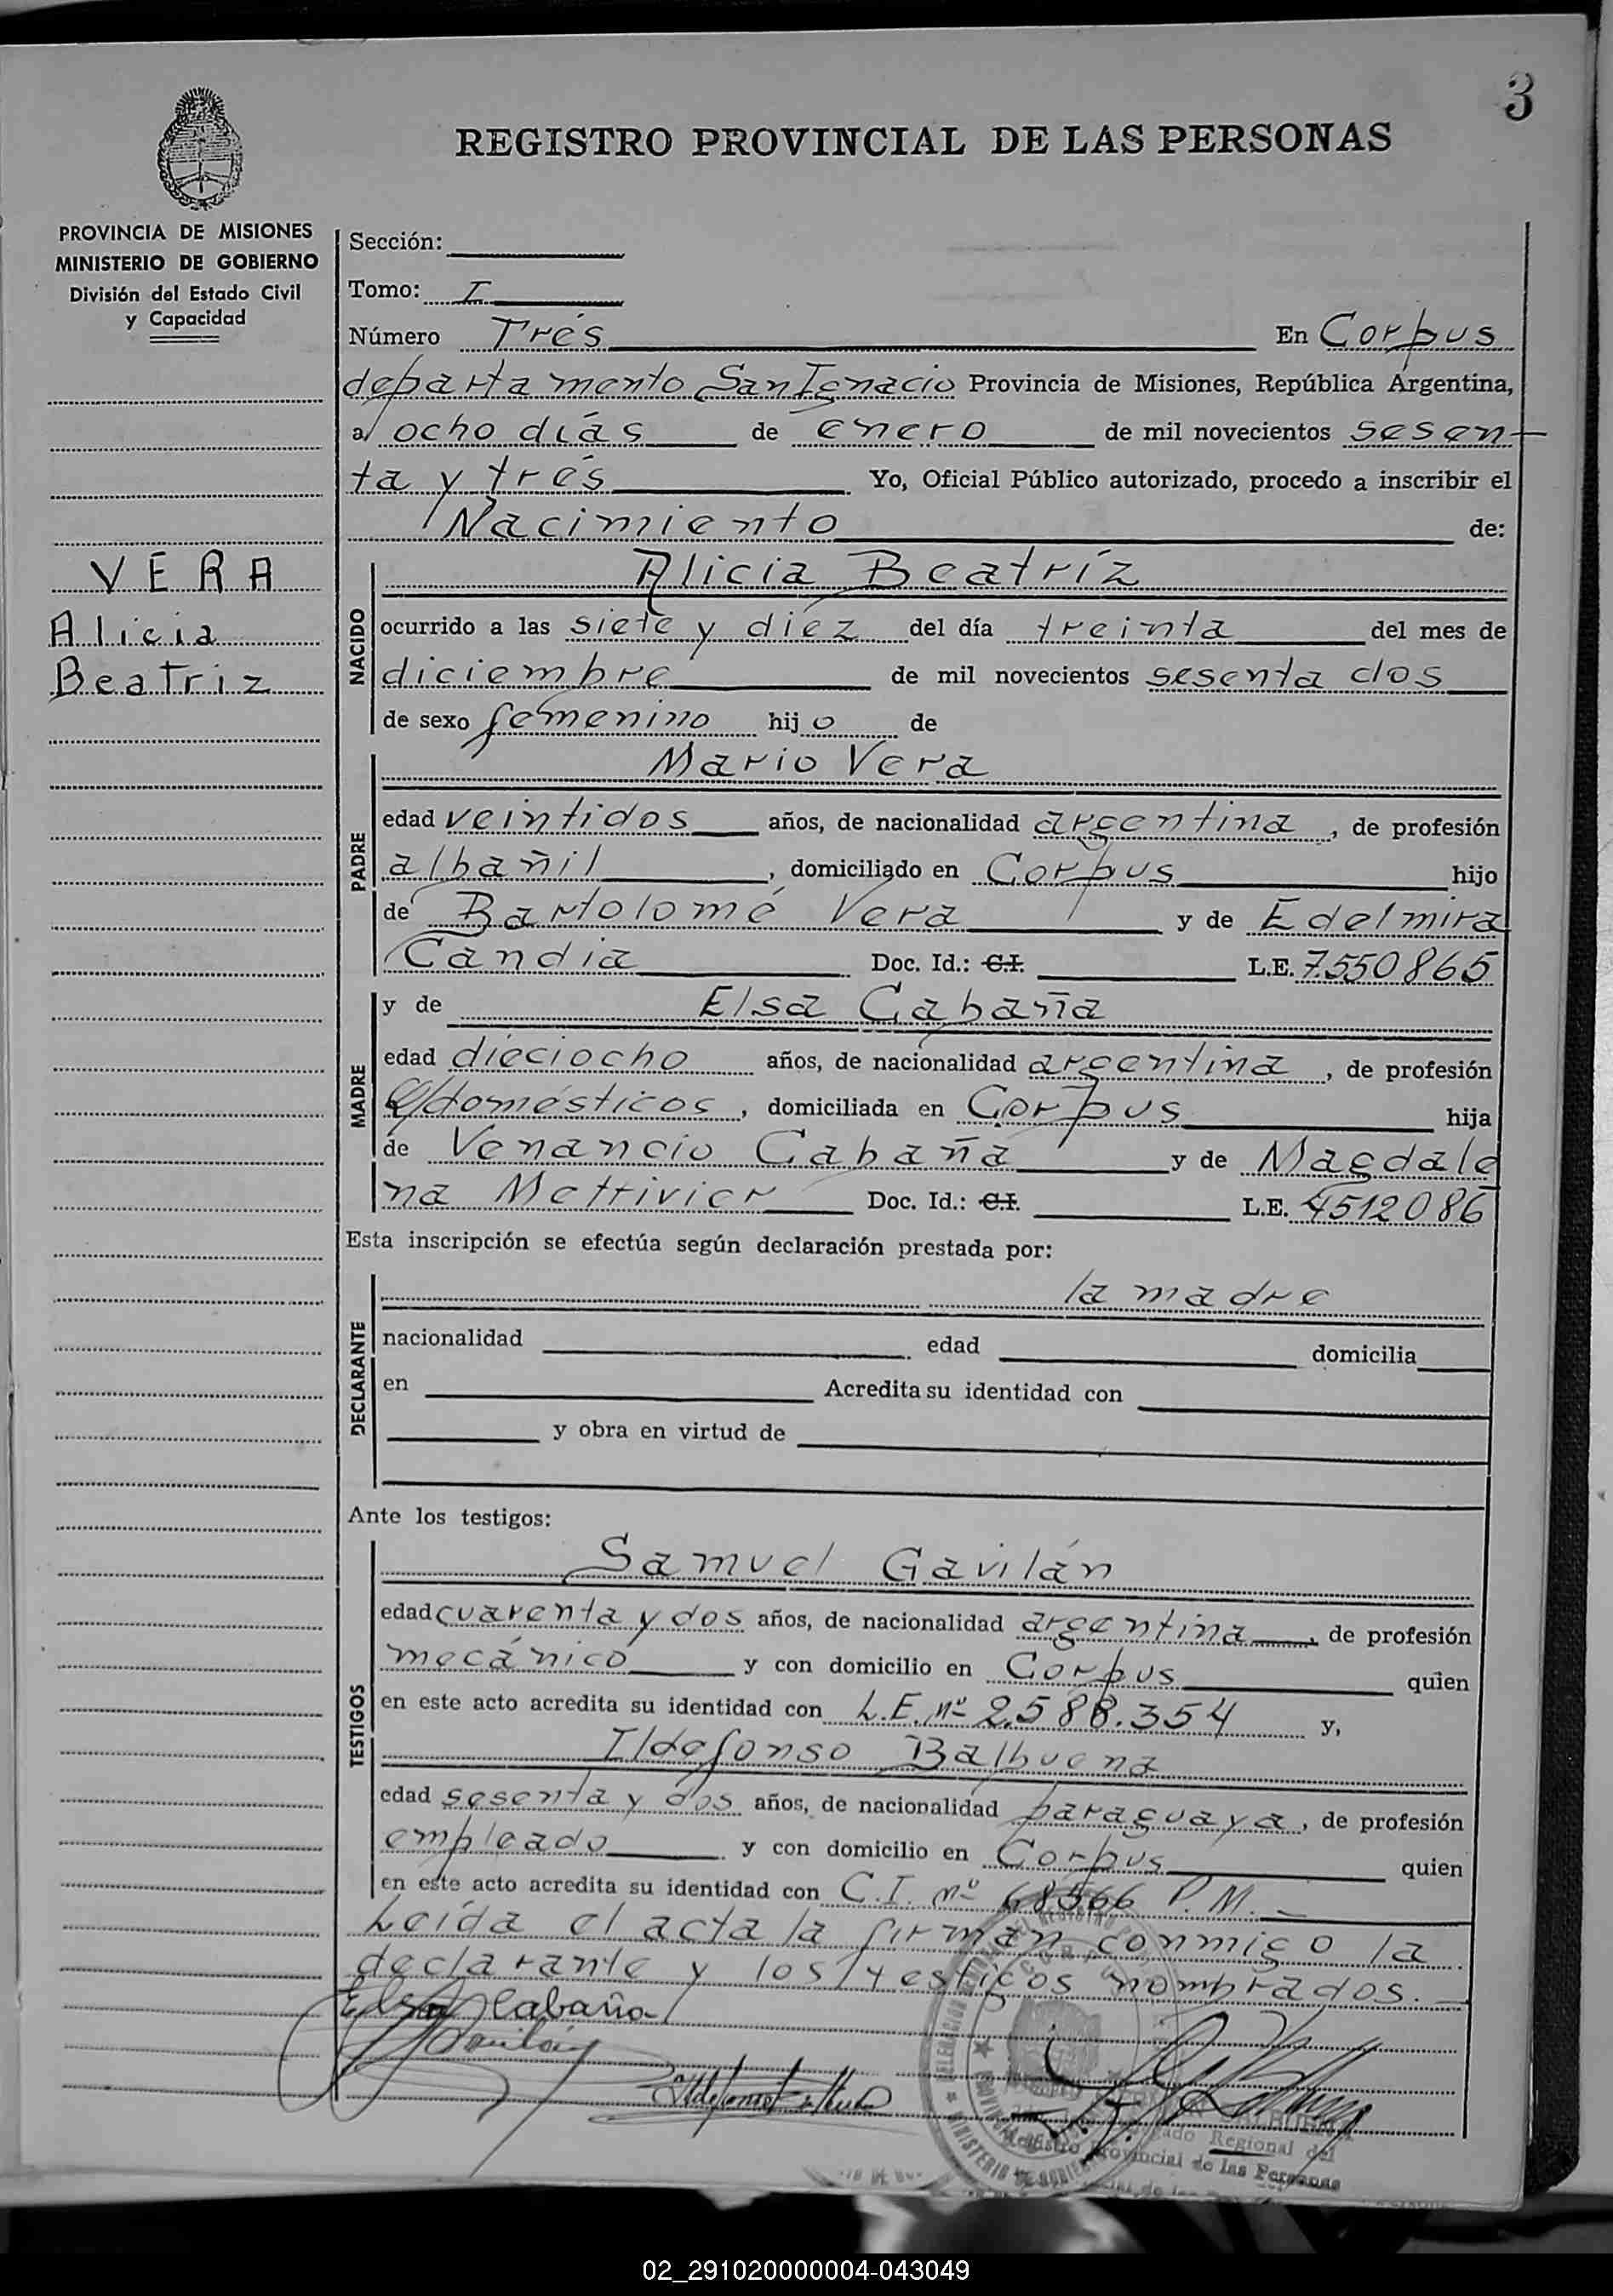 3
REGISTRO PROVINCIAL DE LAS PERSONAS
PROVINCIA DE MISIONES
MINISTERIO DE GOBIERNO
División del Estado Civil
y Capacidad
VERA
Alicia
Beatriz
Sección:
Tomo: I
Número Trés En Corpus
departamento San Ignacio Provincia de Misiones, República Argentina,
a ocho días de enero de mil novecientos sesen-
ta y trés Yo, Oficial Público autorizado, procedo a inscribir el
Nacimiento de:
NACIDO
Alicia Beatríz
ocurrido a las siete y diéz del día treinta del mes de
diciembre de mil novecientos sesenta dos
de sexo femenino hijo de
PADRE
Mario Vera
edad veintidos años, de nacionalidad argentina, de profesión
albañil, domiciliado en Corpus hijo
de Bartolomé Vera y de Edelmira
Candia Doc. Id.: C.I. L.E. 7.550865
MADRE
y de Elsa Cabaña
edad dieciocho años, de nacionalidad argentina, de profesión
Q/domésticos, domiciliada en Corpus hija
de Venancio Cabaña y de Magdale
na Mettivier Doc. Id.: C.I. L.E. 4512086
Esta inscripción se efectúa según declaración prestada por:
DECLARANTE
la madre
nacionalidad edad domicilia
en Acredita su identidad con
y obra en virtud de
Ante los testigos:
TESTIGOS
Samuel Gavilán
edad cuarenta y dos años, de nacionalidad argentina, de profesión
mecánico y con domicilio en Corpus quien
en este acto acredita su identidad con L.E. Nº 2.588.354 y,
Ildefonso Balbuena
edad sesenta y dos años, de nacionalidad paraguaya, de profesión
empleado y con domicilio en Corpus quien
en este acto acredita su identidad con C.I. nº 68566 P.M.
Leída el acta la firman conmigo la
declarante y los testigos nombrados.
Elsa Cabaña
Regional del
Registro Provincial de las Personas
02_291020000004-043049